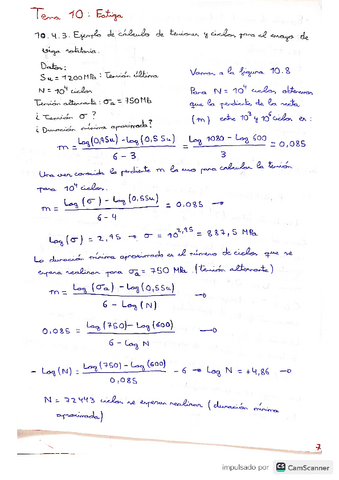 Tema 10: Fatiga
10.4.3. Ejemplo de cálculo de tensiones y ciclos para el ensayo de
viga rotatoria.
Datos:
Su = 1200 MPa : Tensión última
N = 10⁴ ciclos
Tensión alternante: σa = 750 MPa
¿Tensión σ?
¿Duración mínima aproximada?
Vamos a la figura 10.8
Para N = 10⁴ ciclos obtenemos
que la pendiente de la recta
(m) entre 10³ y 10⁶ ciclos es:
m = (Log(0,9Su) - log(0,5Su)) / (6 - 3) = (Log 1080 - Log 600) / 3 = 0,085
Una vez conocida la pendiente m la uso para calcular la tensión
para 10⁴ ciclos:
m = (Log(σ) - Log(0,5Su)) / (6 - 4) = 0.085 →
Log(σ) = 2,95 → σ = 10^2,95 = 887,5 MPa
La duración mínima aproximada es el número de ciclos que se
espera realizar para σa = 750 MPa (tensión alternante)
m = (Log(σa) - Log(0,5Su)) / (6 - Log(N)) →
0.085 = (Log(750) - Log(600)) / (6 - Log N) →
- Log(N) = (Log(750) - Log(600)) / 0,085 - 6 → Log N = +4,86 →
N = 72443 ciclos se esperan realizar (duración mínima
aproximada)
7
impulsado por CS CamScanner